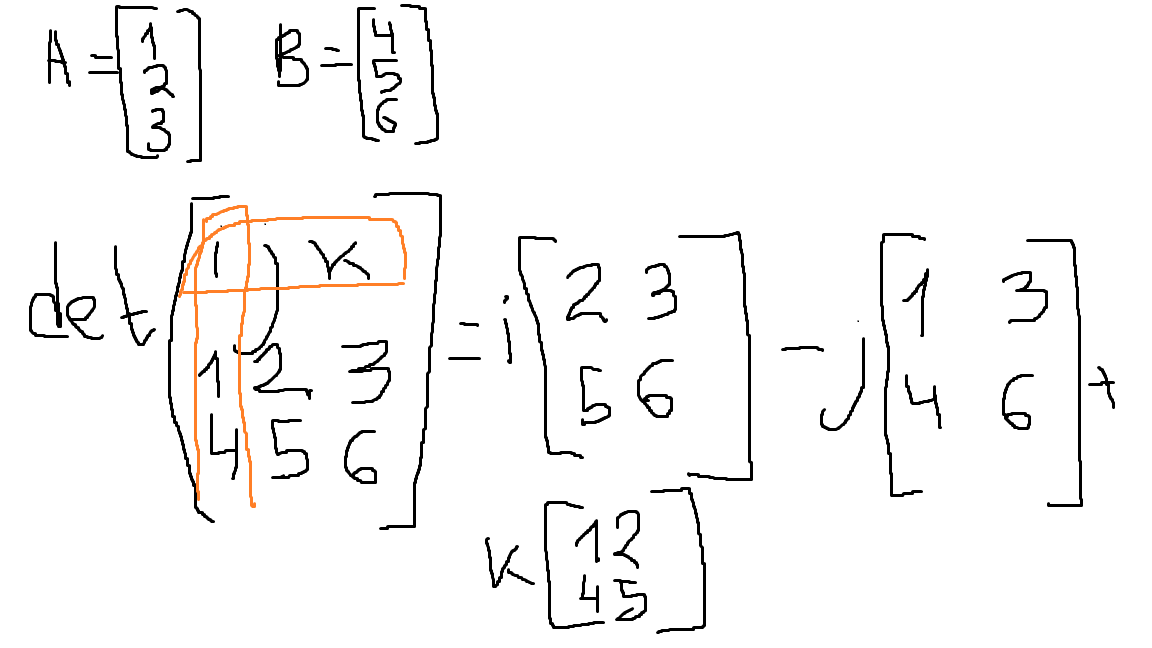 A = [1 2 3] B = [4 5 6]
det [i j k
1 2 3
4 5 6] = i [2 3
5 6] - j [1 3
4 6] +
k [1 2
4 5]